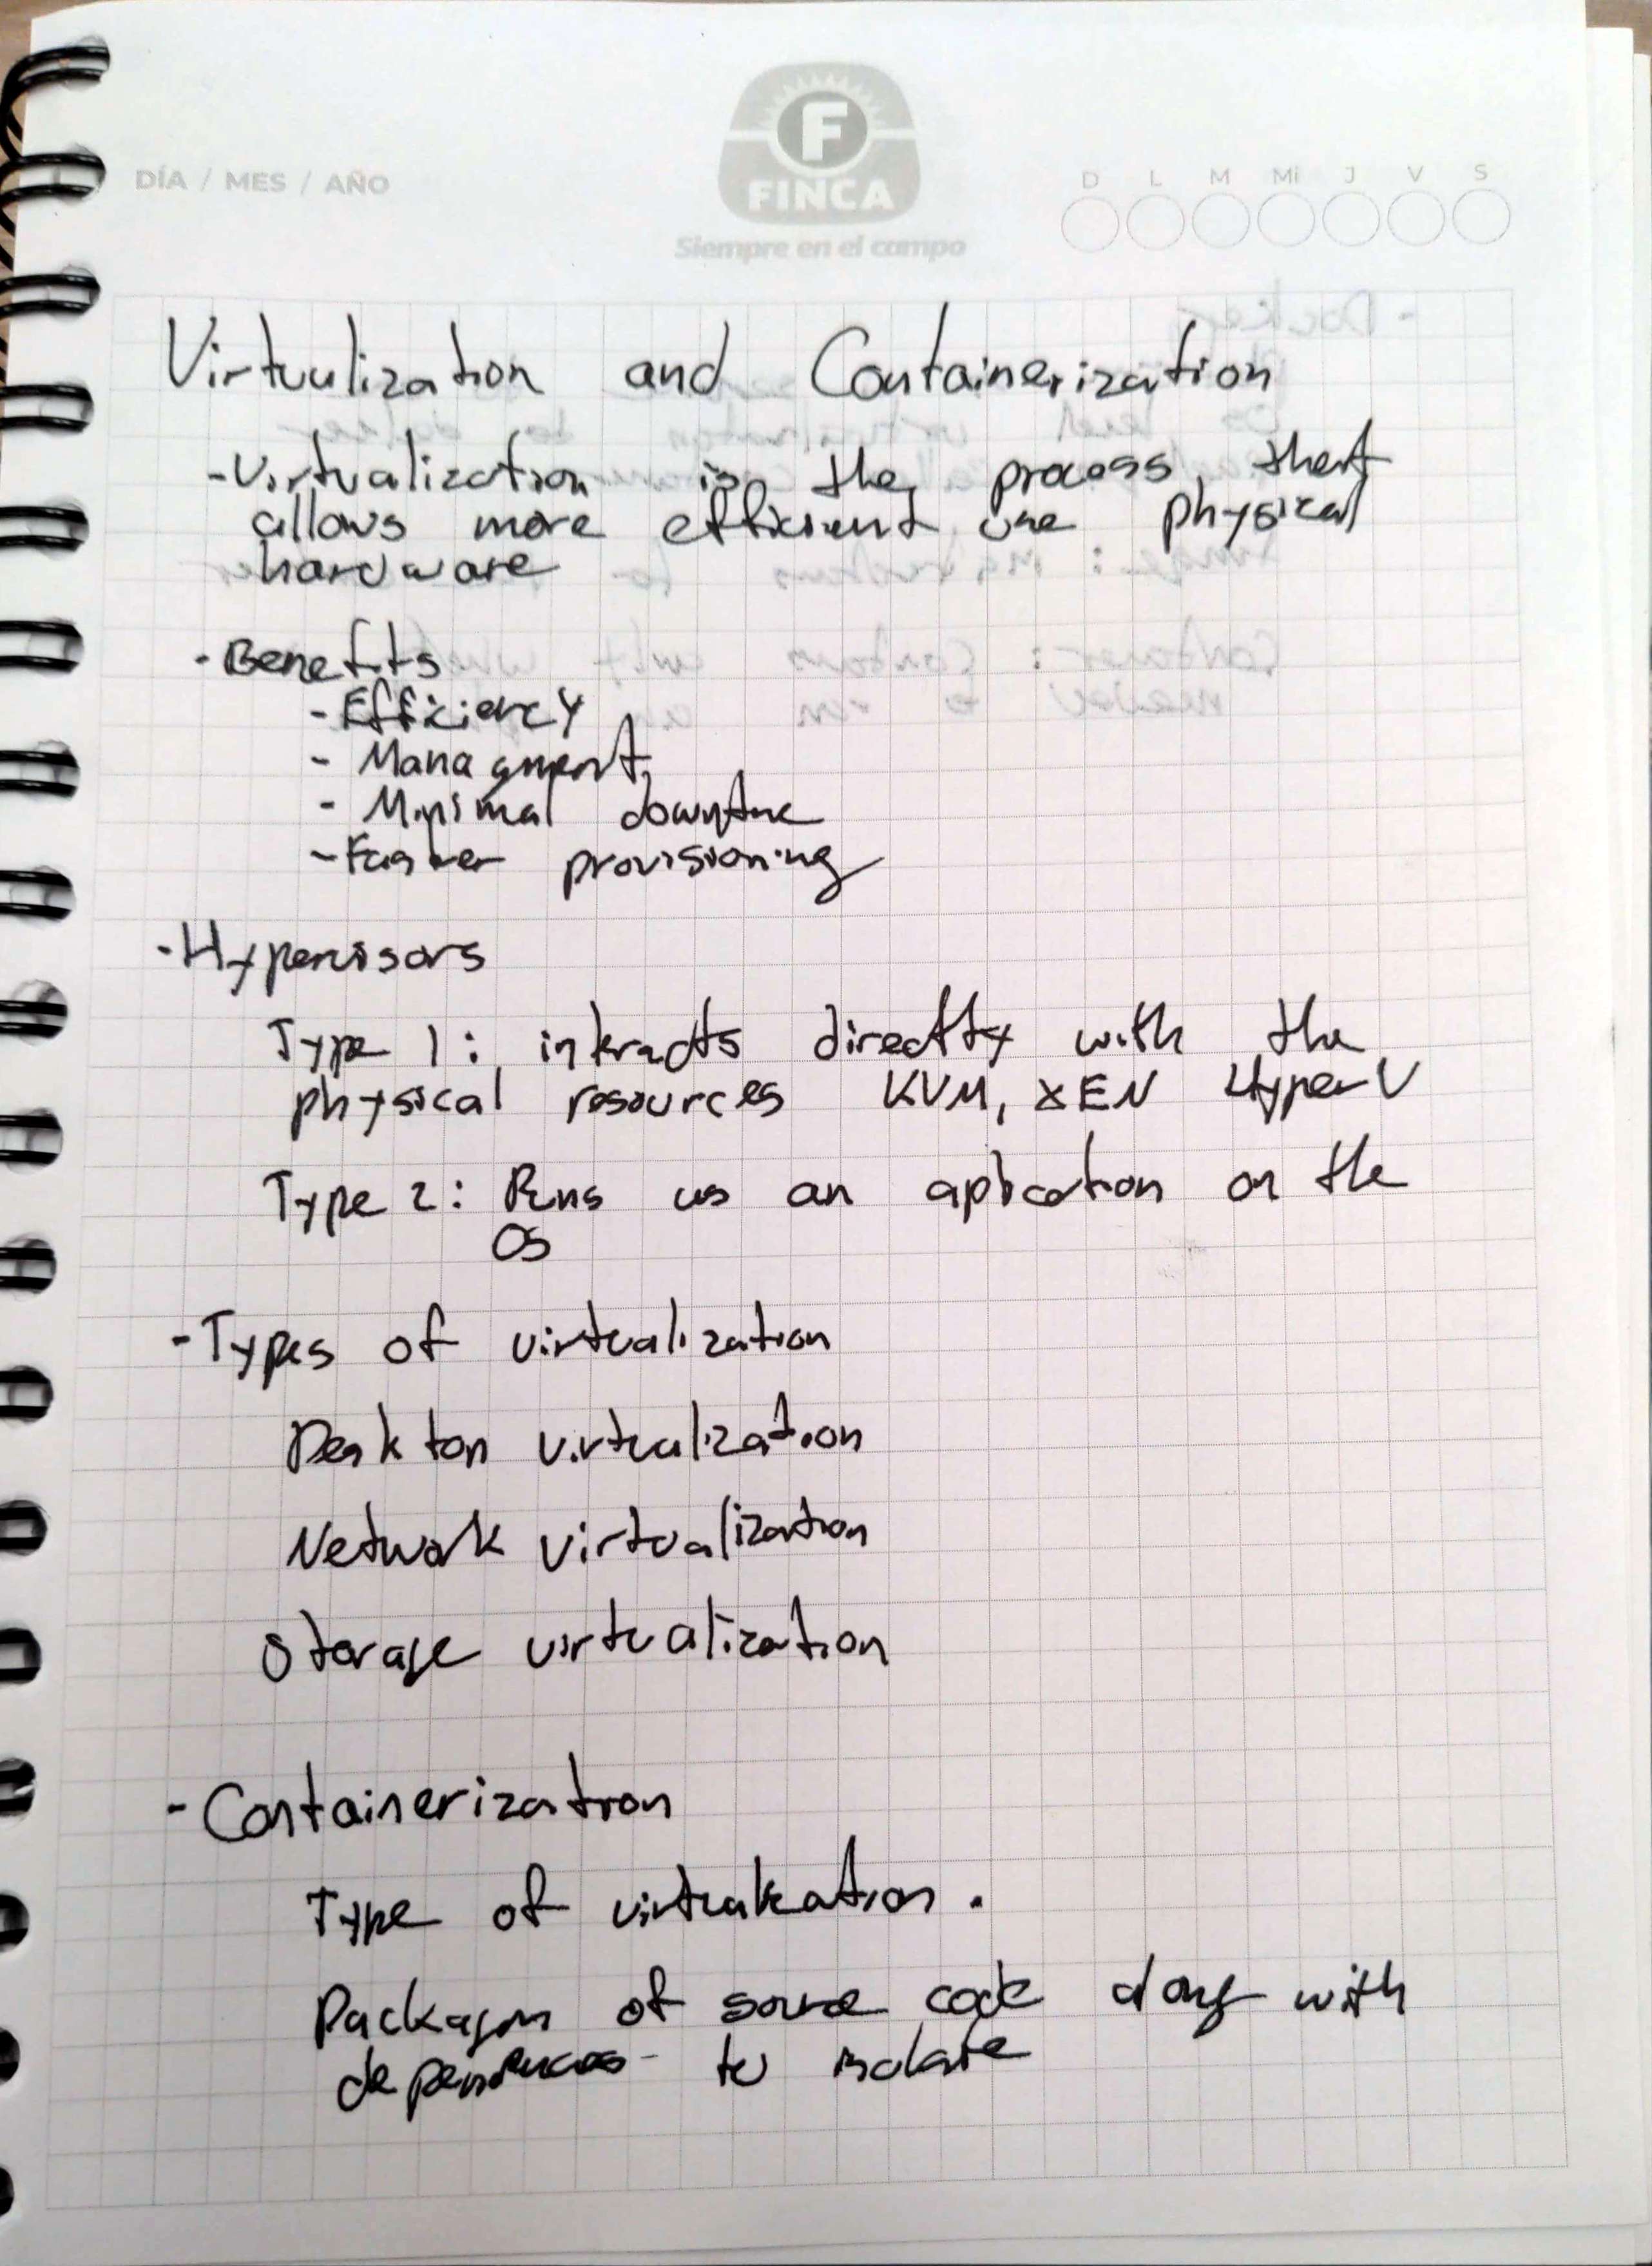 DÍA / MES / AÑO
F
FINCA
Siempre en el campo
D L M Mi J V S
Virtualization and Containerization
- Virtualization is the process that
allows more efficient use physical
hardware
- Benefits
- Efficiency
- Managment
- Minimal downtime
- Faster provisioning
- Hypervisors
Type 1: interacts directly with the
physical resources KVM, XEN HyperV
Type 2: Runs as an aplication on the
OS
- Types of virtualization
Desktop virtualization
Network virtualization
Storage virtualization
- Containerization
Type of virtualization.
Packages of source code along with
dependencies to isolate